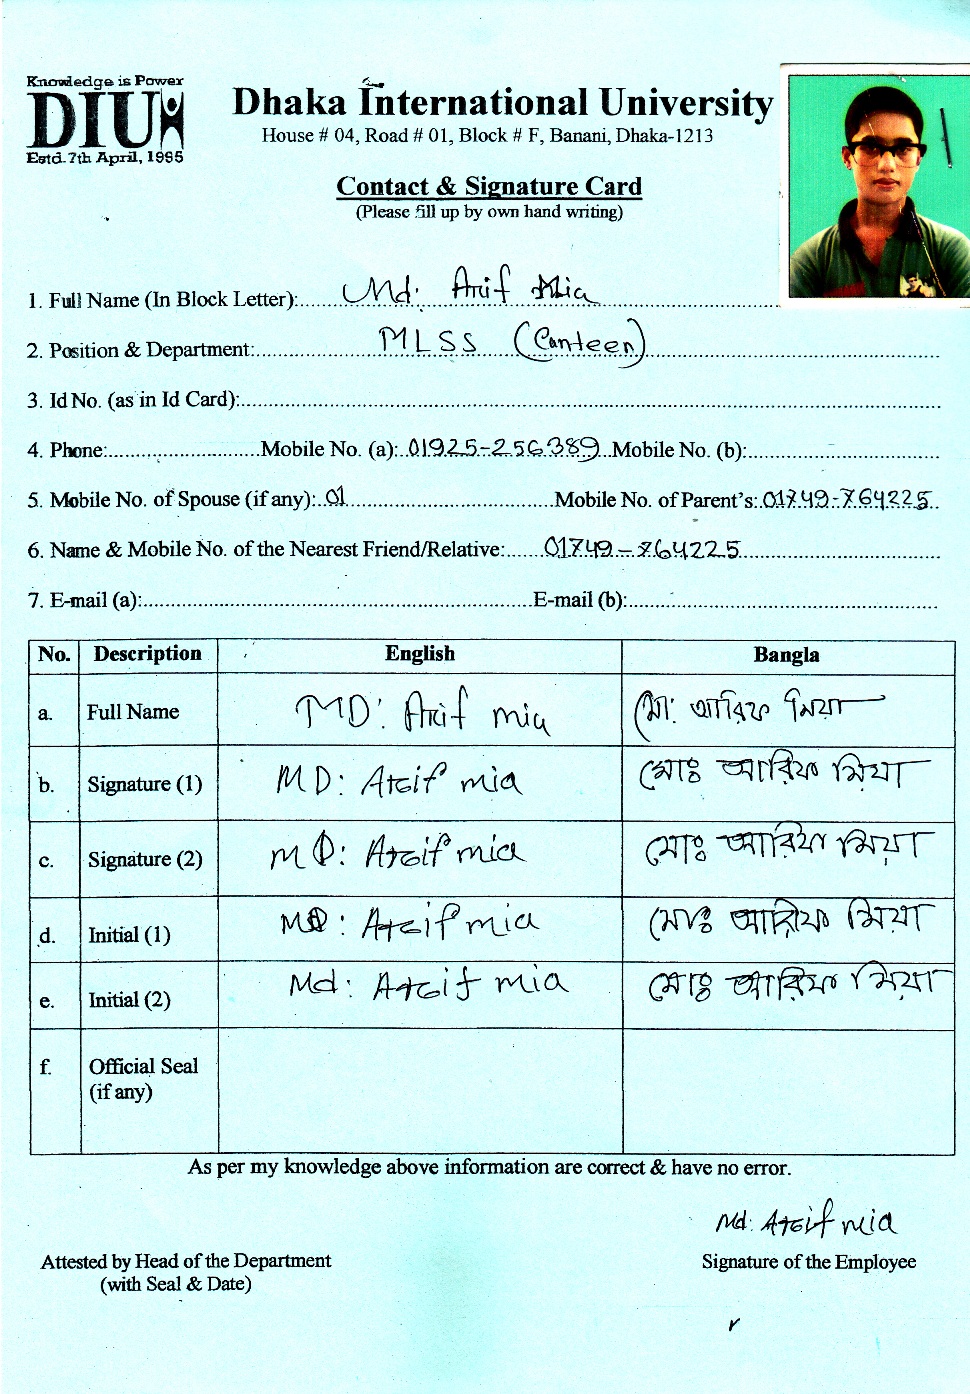 Knowledge is Power
DIU
Estd. 7th April, 1995
Dhaka International University
House # 04, Road # 01, Block # F, Banani, Dhaka-1213
Contact & Signature Card
(Please fill up by own hand writing)
1. Full Name (In Block Letter): Md: Arif Mia
2. Position & Department: MLSS (Canteen)
3. Id No. (as in Id Card):
4. Phone: Mobile No. (a): 01925-256389 Mobile No. (b):
5. Mobile No. of Spouse (if any): 01 Mobile No. of Parent's: 01749-764225
6. Name & Mobile No. of the Nearest Friend/Relative: 01749-764225
7. E-mail (a): E-mail (b):
No. Description English Bangla
a. Full Name MD: Arif mia মো: আরিফ মিয়া
b. Signature (1) MD: Arif mia মোঃ আরিফ মিয়া
c. Signature (2) MD: Arif mia মোঃ আরিফ মিয়া
d. Initial (1) MD: Arif mia মোঃ আরিফ মিয়া
e. Initial (2) Md: Arif mia মোঃ আরিফ মিয়া
f. Official Seal
(if any)
As per my knowledge above information are correct & have no error.
Md: Arif mia
Attested by Head of the Department Signature of the Employee
(with Seal & Date)